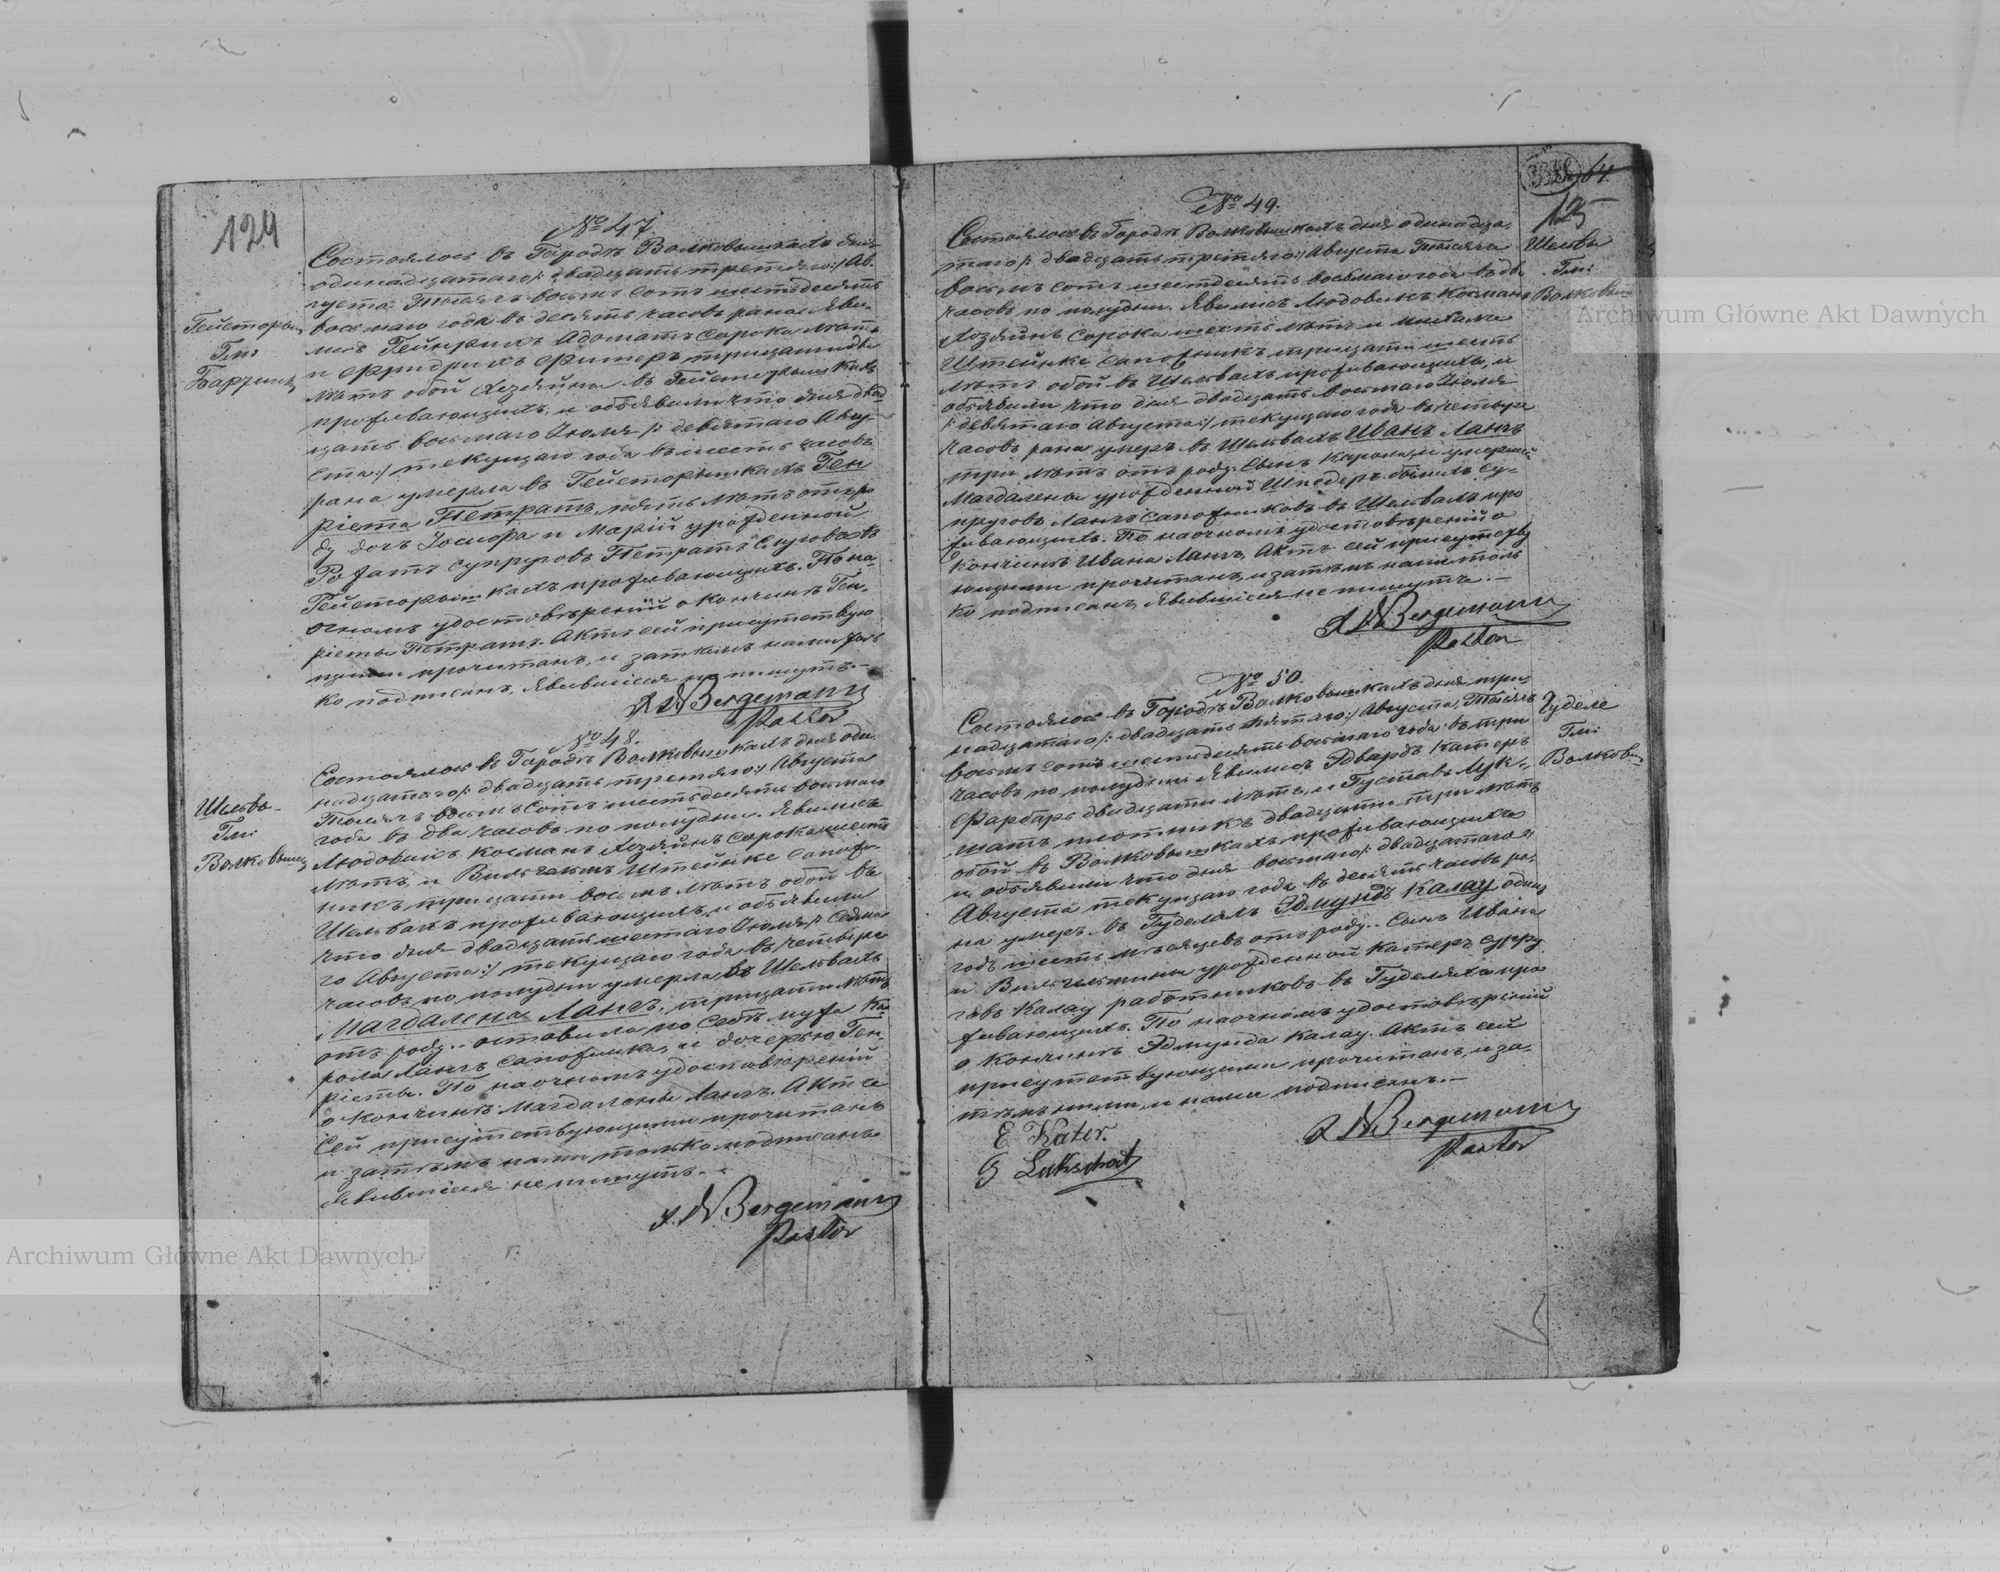 124
№ 47.
Гейсторыш
Гми:
Барзики
Состоялось въ Городѣ Волковышкахъ дня
одинадцатаго /: двадцать третьяго :/ Ав-
густа, Тысяча восемь сотъ шестьдесятъ
восьмаго года въ десять часовъ рана. Яви-
лись Гейнрихъ Адоматъ сорока лѣтъ
и Фридрихъ Фишеръ тридцати два
лѣтъ обои Хозяйна въ Гейсторышкахъ
проживающихъ, и объявили что дня двад-
цать восьмаго Іюля /: девятаго Авгу-
ста :/ текущаго года въ шесть часовъ
рана умерла въ Гейсторышкахъ Ген
ріета Петратъ, пять лѣтъ отъ ро
ду дочъ Іосифа и Маріи урожденной
супруговъ Петратъ
Гейсторышкахъ проживающихъ. По на-
очномъ удостовѣреніи о кончинѣ Ген-
ріеты Петратъ. Актъ сей присутствую
щимъ прочитанъ, и затѣмъ нами толь
ко подписанъ. Явившіеся не пишутъ.—
A W Bergemann
Pastor
№ 48.
Шельва-
Гми:
Волковыш
Состоялось въ Городѣ Волковышкахъ дня оди-
надцатаго /: двадцать третьяго :/ Августа
Тысяча восемь сотъ шестьдесятъ восьмаго
года въ два часовъ по полудни. Явились
Людовикъ Косманъ Хозяйнъ сорока шесть
лѣтъ, и Вильгельмъ Штейнке сапож-
никъ тридцати восемь лѣтъ обои въ
Шельвахъ проживающихъ, и объявили
что дня двадцать шестаго Іюля /: седма
го Августа :/ текущаго года въ четыре
часовъ по полудни умерла въ Шельвахъ
Магдалена Лангъ, тридцати лѣтъ
отъ роду.. оставила по себѣ мужа Ка-
рола Лангъ сапожника, и дочерью Ген-
ріеты. По наочномъ удостовѣреніи
о кончинѣ Магдалены Лангъ. Актъ
сей присутствующими прочитанъ
и затѣмъ нами только подписанъ
Явившіеся не пишутъ.—
A. W Bergemann
Pastor
64
125
№ 49.
Шельва
Гми:
Волковыш
Состоялось въ Городѣ Волковышкахъ дня одинадца-
таго /: двадцать третьяго :/ Августа Тысяча
восемь сотъ шестдесятъ восьмаго года въ два
часовъ по полудни. Явились Людовикъ Косманъ
Хозяйнъ сорока шесть лѣтъ и Михалъ
Штейнке сапожникъ тридцати шесть
лѣтъ обои въ Шельвахъ проживающихъ, и
объявили что дня двадцать восьмаго Іюля
/: девятаго Августа :/ текущаго года въ четыре
часовъ рана умеръ въ Шельвахъ Иванъ Лангъ
три лѣтъ отъ роду. Сынъ Карола, и умершей
Магдалены урожденной Шнедеръ бывшихъ су-
пруговъ Лангъ сапожниковъ въ Шельвахъ про
живающихъ. По наочномъ удостовѣреніи о
кончинѣ Ивана Лангъ, Актъ сей присутству
ющими прочитанъ, и затѣмъ нами толь
ко подписанъ, Явившіеся не пишутъ.—
A W Bergemann
Pastor
№ 50.
Гуделе
Гми:
Волковы-
Состоялось въ Городѣ Волковышкахъ дня три-
надцатаго /: двадцать пятаго :/ Августа, Тысяча
восемь сотъ шестьдесятъ восьмаго года въ три
часовъ по полудни. Явились Эдвардъ Катеръ
Фарбаръ двадцати лѣтъ, и Густавъ Лук-
шатъ плотникъ двадцати три лѣтъ
обои въ Волковышкахъ проживающихъ
и объявили что дня восьмаго /: двадцатаго :/
Августа текущаго года въ десять часовъ ра-
на умеръ въ Гуделяхъ Эдмундъ Калау одинъ
годъ шесть мѣсяцевъ отъ роду.. Сынъ Ивана
и Вильгельмины урожденной Катеръ супру
говъ Калау работниковъ въ Гуделяхъ про-
живающихъ. По наочномъ удостовѣреніи
о кончинѣ Эдмунда Калау. Актъ сей
присутствующими прочитанъ, и за-
тѣмъ ними, и нами подписанъ.—
E Kater.
G Lukschat
A W Bergemann
Pastor
Archiwum Główne Akt Dawnych
Archiwum Główne Akt Dawnych